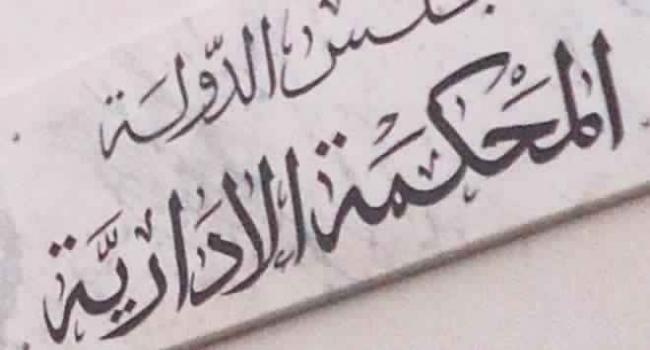 مجلس الدّولة
المحَكمَة الادَاريَّة